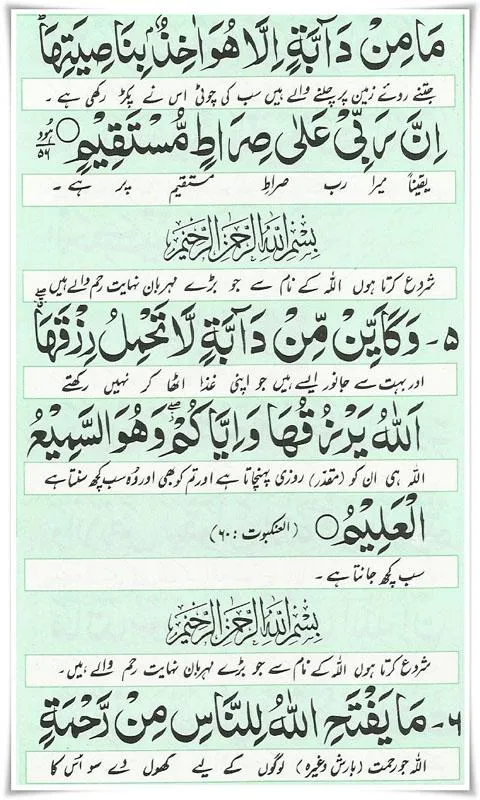 مَا مِنْ دَآبَّةٍ اِلَّا هُوَ اٰخِذٌۢ بِنَاصِيَتِهَا ؕ
جتنے روئے زمین پر چلنے والے ہیں سب کی چوٹی اس نے پکڑ رکھی ہے ۔
اِنَّ رَبِّيْ عَلٰى صِرَاطٍ مُّسْتَقِيْمٍ ○ ہود ۵۶
یقیناً میرا رب صراطِ مستقیم پر ہے ۔
بِسْمِ اللّٰهِ الرَّحْمٰنِ الرَّحِيْمِ
شروع کرتا ہوں اللہ کے نام سے جو بڑے مہربان نہایت رحم والے ہیں
۵۔ وَكَاَيِّنْ مِّنْ دَآبَّةٍ لَّا تَحْمِلُ رِزْقَهَا
اور بہت سے جانور ایسے ہیں جو اپنی غذا اٹھا کر نہیں رکھتے
اَللّٰهُ يَرْزُقُهَا وَاِيَّاكُمْ وَهُوَ السَّمِيْعُ
اللہ ہی ان کو (مقدّر) روزی پہنچاتا ہے اور تم کو بھی اور وُہ سب کچھ سنتا ہے
الْعَلِيْمُ ○ (العنکبوت : ۶۰)
سب کچھ جانتا ہے ۔
بِسْمِ اللّٰهِ الرَّحْمٰنِ الرَّحِيْمِ
شروع کرتا ہوں اللہ کے نام سے جو بڑے مہربان نہایت رحم والے ہیں۔
۶۔ مَا يَفْتَحِ اللّٰهُ لِلنَّاسِ مِنْ رَّحْمَةٍ
اللہ جو رحمت (بارش وغیرہ) لوگوں کے لیے کھول دے سو اُس کا